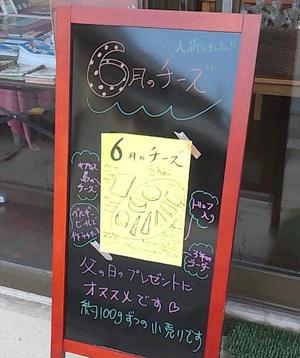 入荷しました!!
6月のチーズ
6月のチーズ
キプロス
島の
チーズ
トリュフ
入り
ベルギー
ビールで
作られた
3年の
ゴーダ
父の日のプレゼントに
オススメです♡
約100gずつの小売りです